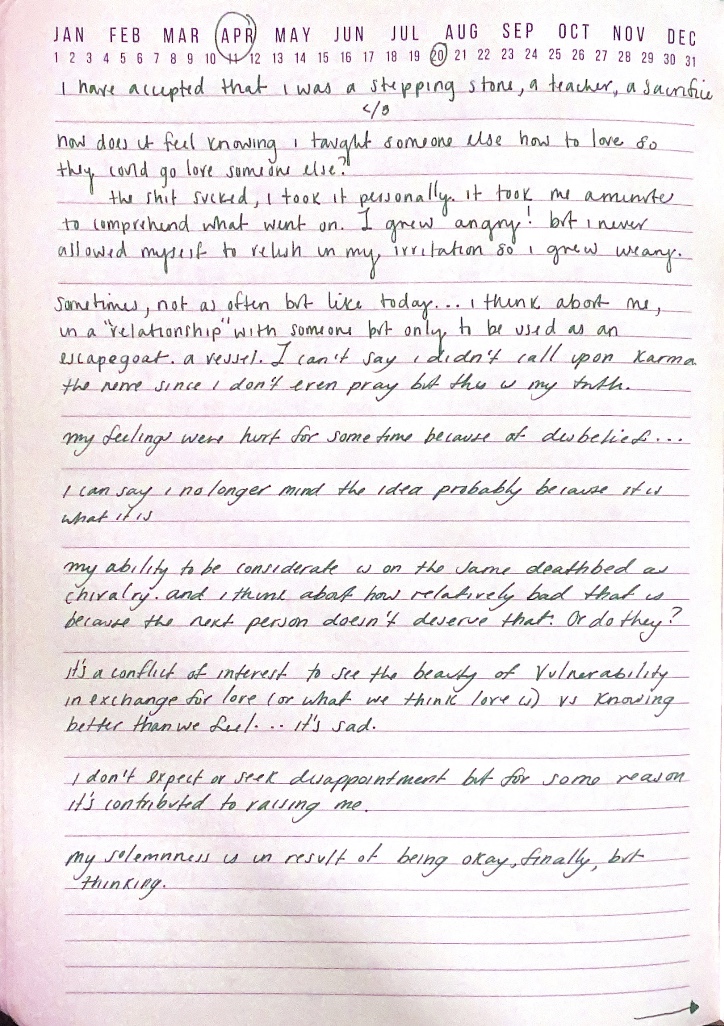 JAN FEB MAR APR MAY JUN JUL AUG SEP OCT NOV DEC
1 2 3 4 5 6 7 8 9 10 11 12 13 14 15 16 17 18 19 20 21 22 23 24 25 26 27 28 29 30 31
I have accepted that I was a stepping stone, a teacher, a sacrifice
</3
how does it feel knowing i taught someone else how to love so
they could go love someone else?
the shit sucked, I took it personally. it took me a minute
to comprehend what went on. I grew angry! but i never
allowed myself to relish in my irritation so i grew weary.
sometimes, not as often but like today... i think about me,
in a "relationship" with someone but only to be used as an
escapegoat. a vessel. I can't say i didn't call upon Karma
the nerve since I don't even pray but this is my truth.
my feelings were hurt for sometime because of disbelief...
I can say i no longer mind the idea probably because it is
what it is
my ability to be considerate is on the same deathbed as
chivalry. and i think about how relatively bad that is
because the next person doesn't deserve that. Or do they?
it's a conflict of interest to see the beauty of Vulnerability
in exchange for love (or what we think love is) vs Knowing
better than we feel... it's sad.
I don't expect or seek disappointment but for some reason
it's contributed to raising me.
my solemnness is in result of being okay, finally, but
thinking.